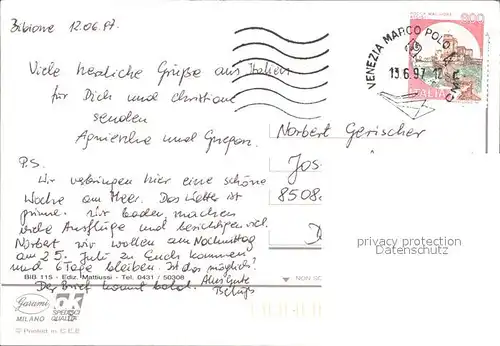 Bibione 12.06.97.
Viele herzliche Grüße aus Italien
für Dich und Christiane
senden
Agnieszka und Grzegorz
P.S.
Wir verbringen hier eine schöne
Woche am Meer. Das Wetter ist
prima. Wir baden, machen
viele Ausflüge und besichtigen viel.
Norbert wir wollen am Nachmittag
am 25. Juli zu Euch kommen
und 6 Tage bleiben. Ist das möglich?
Der Brief kommt bald. Alles Gute
VENEZIA MARCO POLO
13.6.97 12
ITALIA
Norbert Gerischer
Jos
8508
D
privacy protection
Datenschutz
BIB 115 - Ediz. Mattiussi - Tel. 0431 / 50308
NON
Garami
MILANO
Printed in C E E